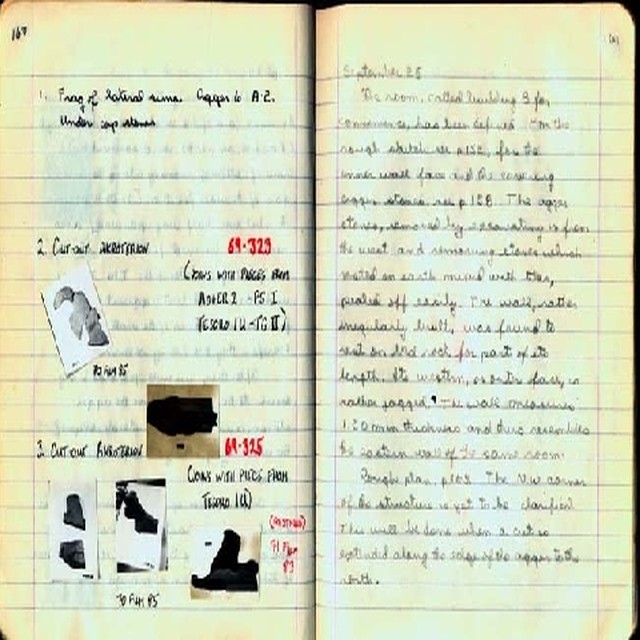 160
1. Frag of lateral sima. Agger 6 A-Z.
Under cap stones
2. CUT-OUT AKROTERION 69-323
(JOINS WITH PIECES FROM
AGGER 2 -
TESORO
TO FILM 85
3. CUT-OUT AKROTERION 69-325
(JOINS WITH PIECES FROM
TESORO
TO FILM 85
September 25
The room, called building 3 for
convenience, has been defined. For the
rough sketch see p 132, for the
inner wall face and the covering
agger stones see p 128. The agger
stones, removed by excavating from
the west and removing stones which
rested on earth mixed with tiles,
peeled off easily. The wall, rather
irregularly built, was found to
rest on bed rock for part of its
length. Its western, or outer face, is
rather jagged. The wall measures
1.20 m in thickness and thus resembles
the eastern wall of the same room.
Rough plan, p. The NW corner
of the structure is yet to be clarified.
This will be done when a cut is
extended along the edge of the agger to the
north.